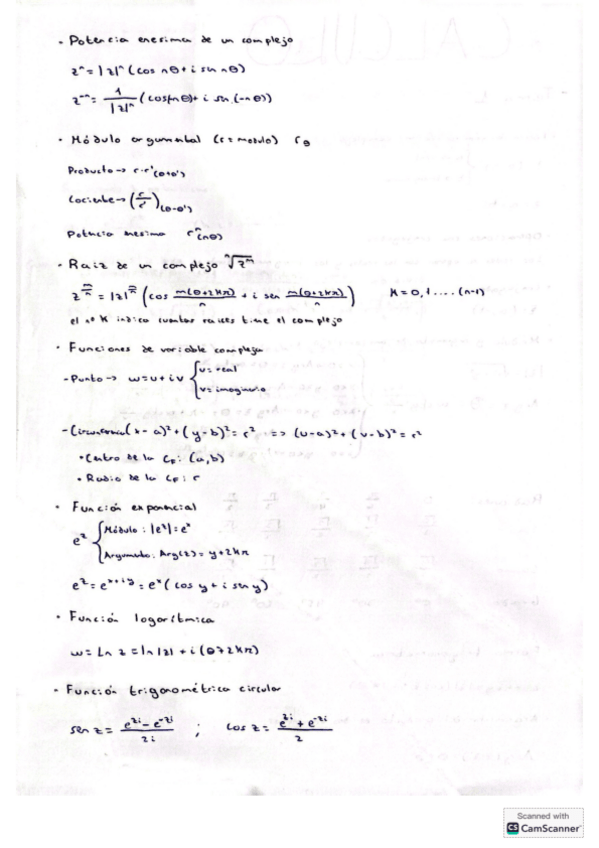 · Potencia enesima de un complejo
zⁿ = |z|ⁿ (cos nθ + i sen nθ)
z⁻ⁿ = 1/|z|ⁿ (cos(-nθ) + i sen (-nθ))
· Módulo argumental (r = modulo) r_θ
Producto → r·r'_(θ+θ')
Cociente → (r/r')_(θ-θ')
Potencia nesima rⁿ_(nθ)
· Raiz de un complejo ⁿ√zᵐ
z^(m/n) = |z|^(m/n) (cos m(θ+2kπ)/n + i sen m(θ+2kπ)/n) K = 0, 1 .... (n-1)
el nº K indica cuantas raices tiene el complejo
· Funciones de variable compleja
- Punto → w = u + iv { u = real
v = imaginario
- Circunferencia (x - a)² + (y - b)² = r² => (u-a)² + (v-b)² = r²
· Centro de la CF: (a,b)
· Radio de la CF: r
· Función exponencial
e^z { Módulo: |e^z| = e^x
Argumento: Arg(z) = y + 2kπ
e^z = e^(x+iy) = e^x (cos y + i sen y)
· Función logarítmica
w = Ln z = ln |z| + i (θ + 2kπ)
· Función trigonométrica circular
sen z = (e^(zi) - e^(-zi))/2i ; cos z = (e^(zi) + e^(-zi))/2
Scanned with
CS CamScanner